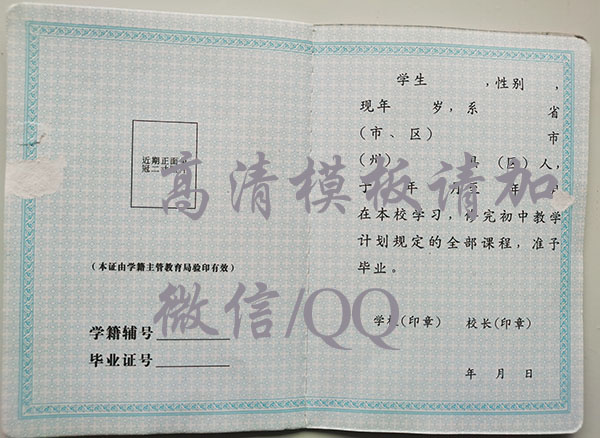 近期正面
冠二寸
(本证由学籍主管教育局验印有效)
学籍辅号
毕业证号
学生 ,性别 ,
现年 岁,系 省
(市、区) 市
(州) 县(区)人,
于 年 月至 年 月
在本校学习,修完初中教学
计划规定的全部课程,准予
毕业。
学校(印章) 校长(印章)
年 月 日
高清模板请加
微信/QQ